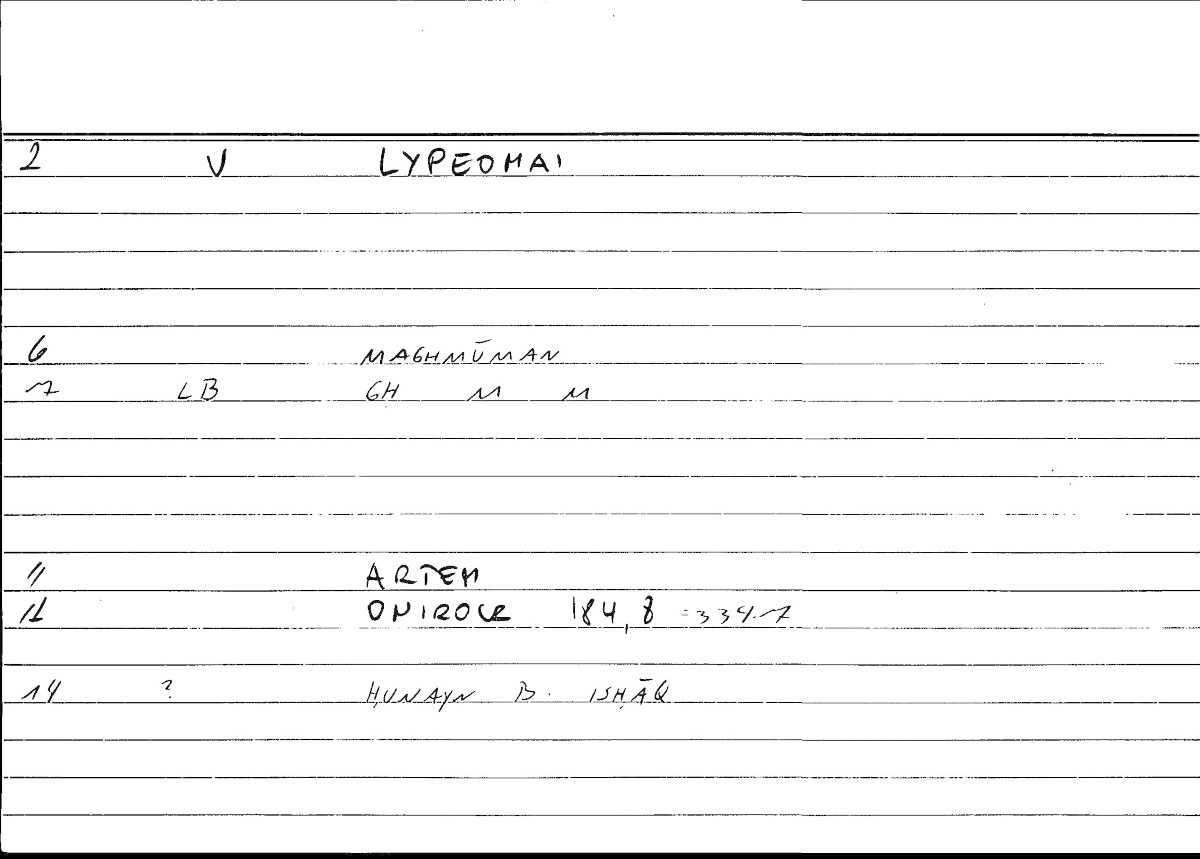 2 V LYPEOMAI
6 MAGHMŪMAN
7 LB GH M M
11 ARTEM
12 ONIROCR 184,8 =334.7
14 ? ḤUNAYN B. ISḤĀQ